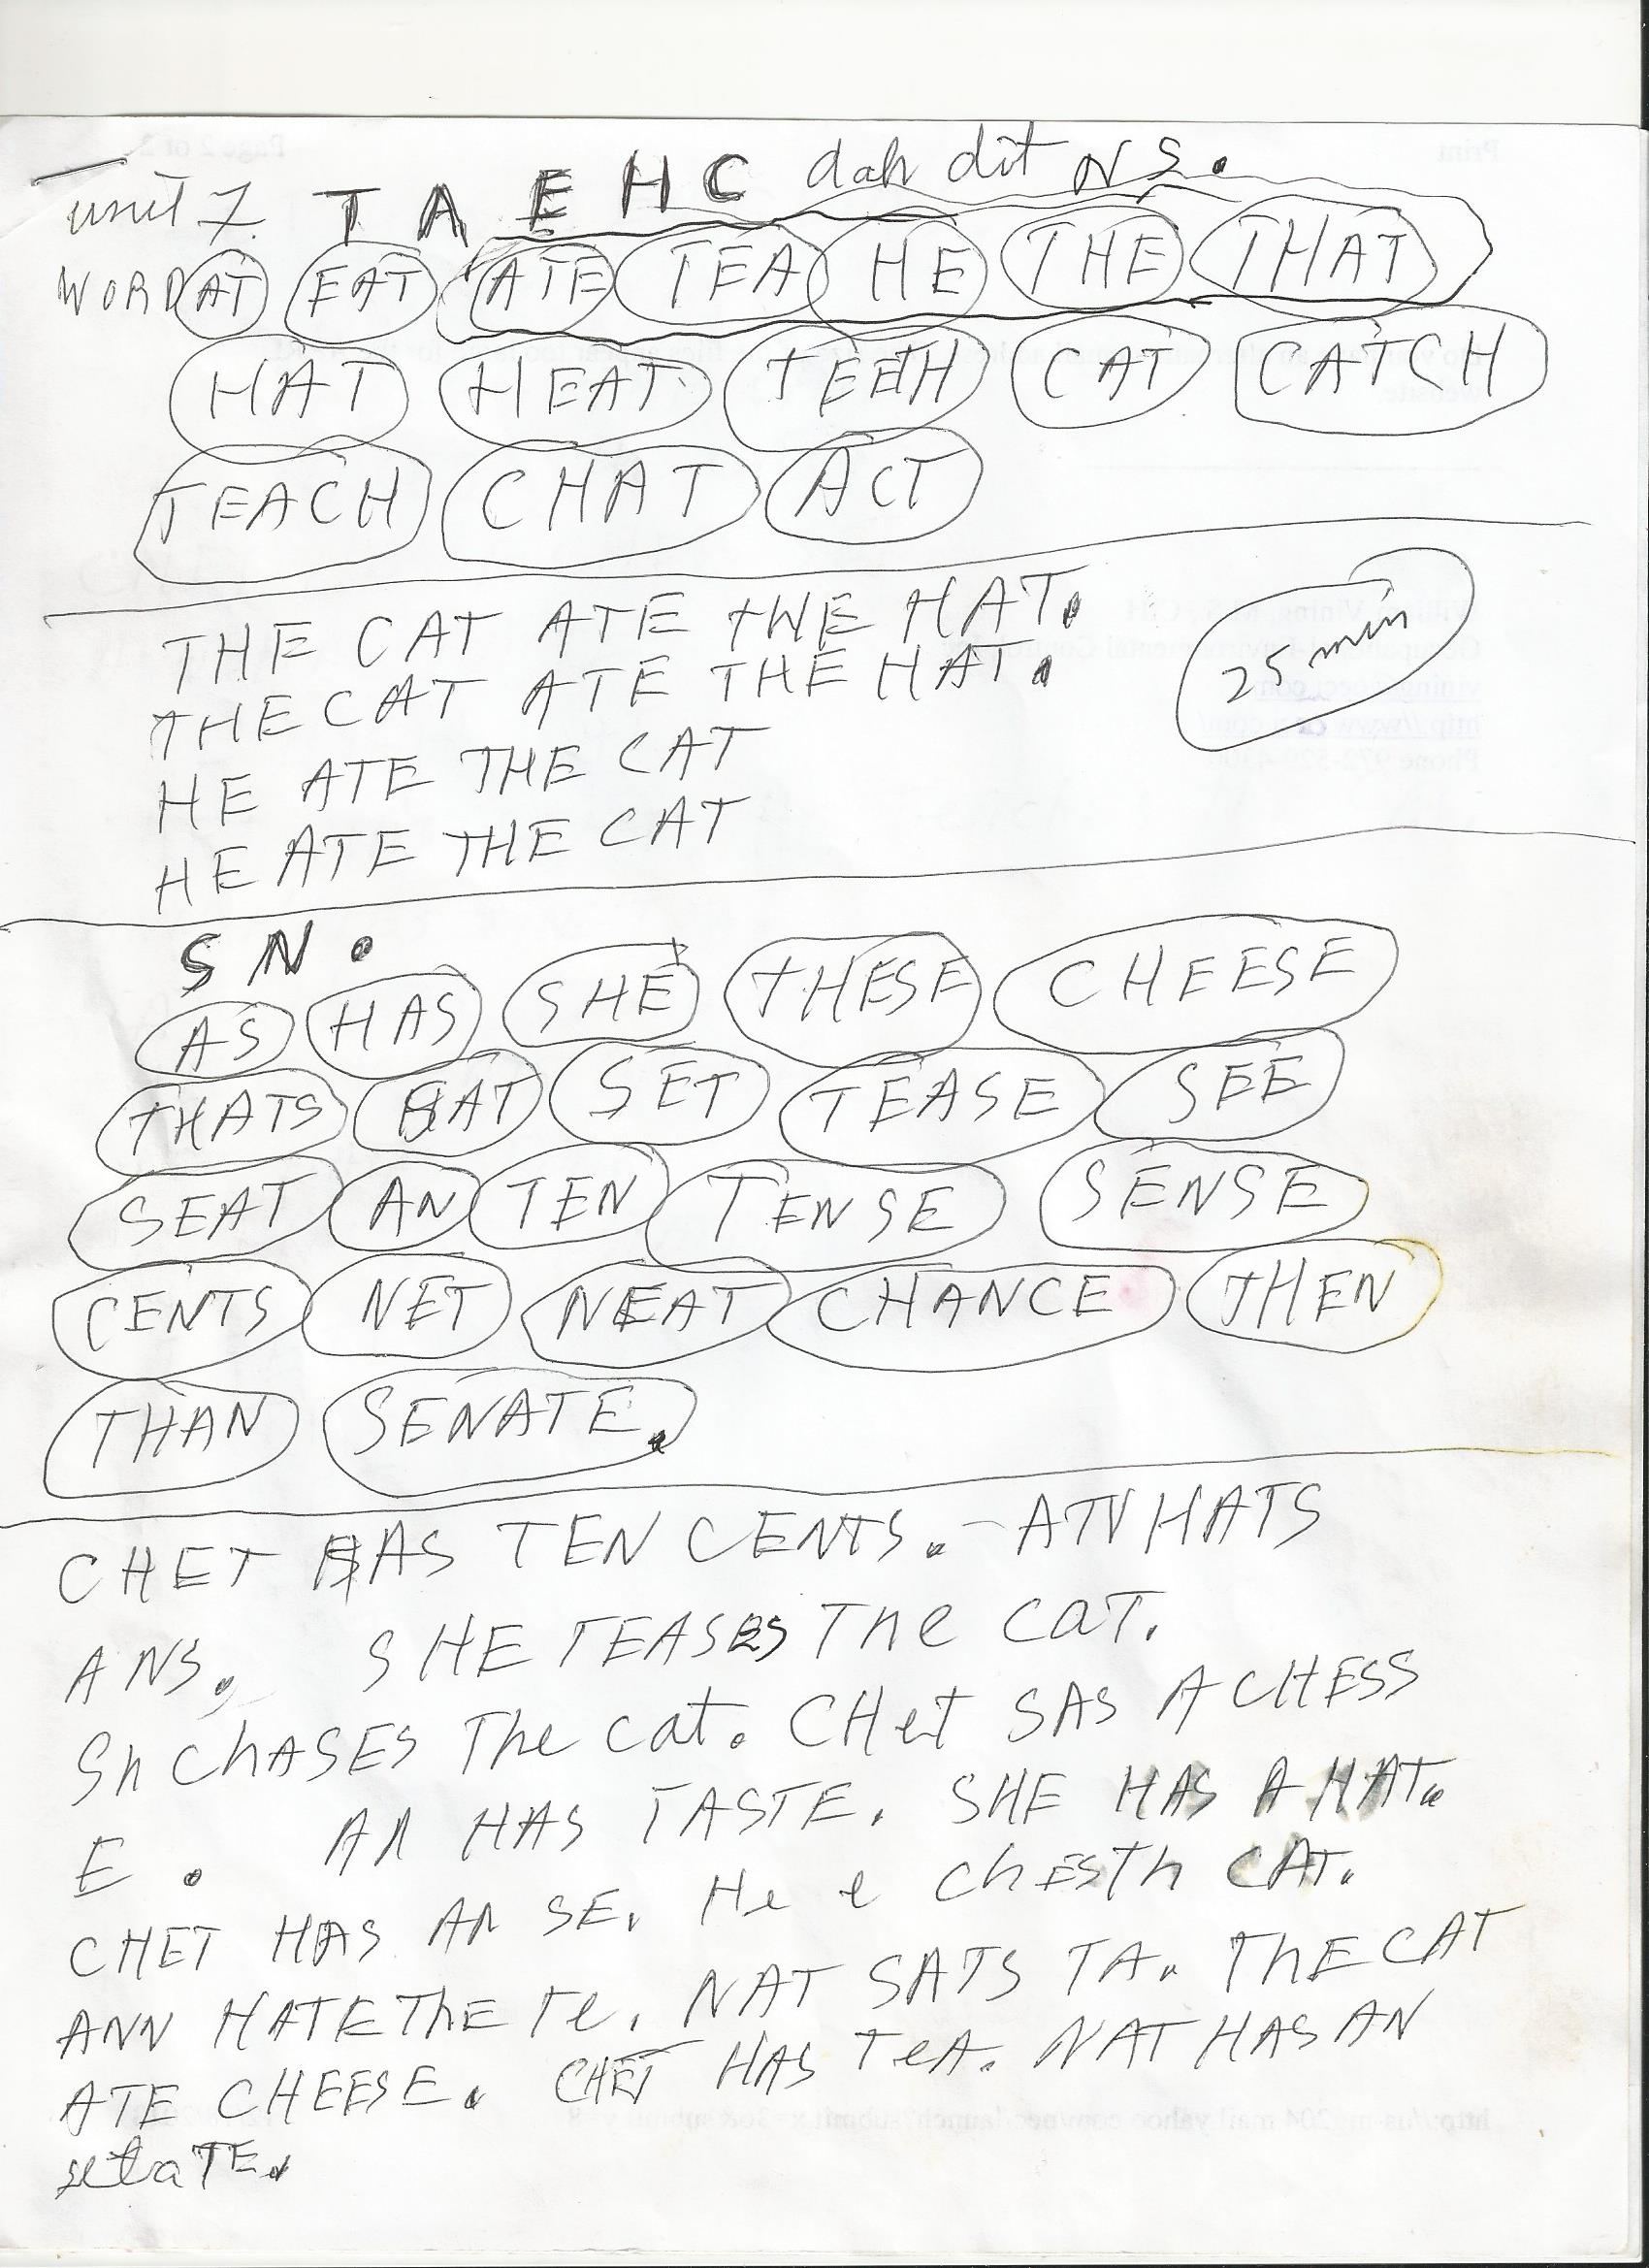 unit 7 T A E H C dah dit N S.
WORD AT EAT ATE TEA HE THE THAT
HAT HEAT TEETH CAT CATCH
TEACH CHAT ACT
THE CAT ATE THE HAT.
25 min
THE CAT ATE THE HAT.
HE ATE THE CAT
HE ATE THE CAT
S N .
AS HAS SHE THESE CHEESE
THATS SAT SET TEASE SEE
SEAT AN TEN TENSE SENSE
CENTS NET NEAT CHANCE THEN
THAN SENATE.
CHET HAS TEN CENTS. – ATN HATS
ANS. SHE TEASES The CaT.
Sh ChASES The cat. CHet SAS A CHESS
E . An HAS TASTE. SHE HAS A HAT.
CHET HAS An SE. He e ChESTh CAT.
ANN HATE ThE Te. NAT SATS TA. ThE CAT
ATE CHEESE. CHET HAS TeA. NAT HAS AN